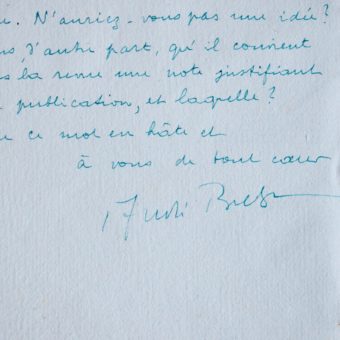 N'auriez-vous pas une idée?
d'autre part, qu'il convient
la revue une note justifiant
publication, et laquelle?
ce mot en hâte et
à vous de tout cœur
André Breton